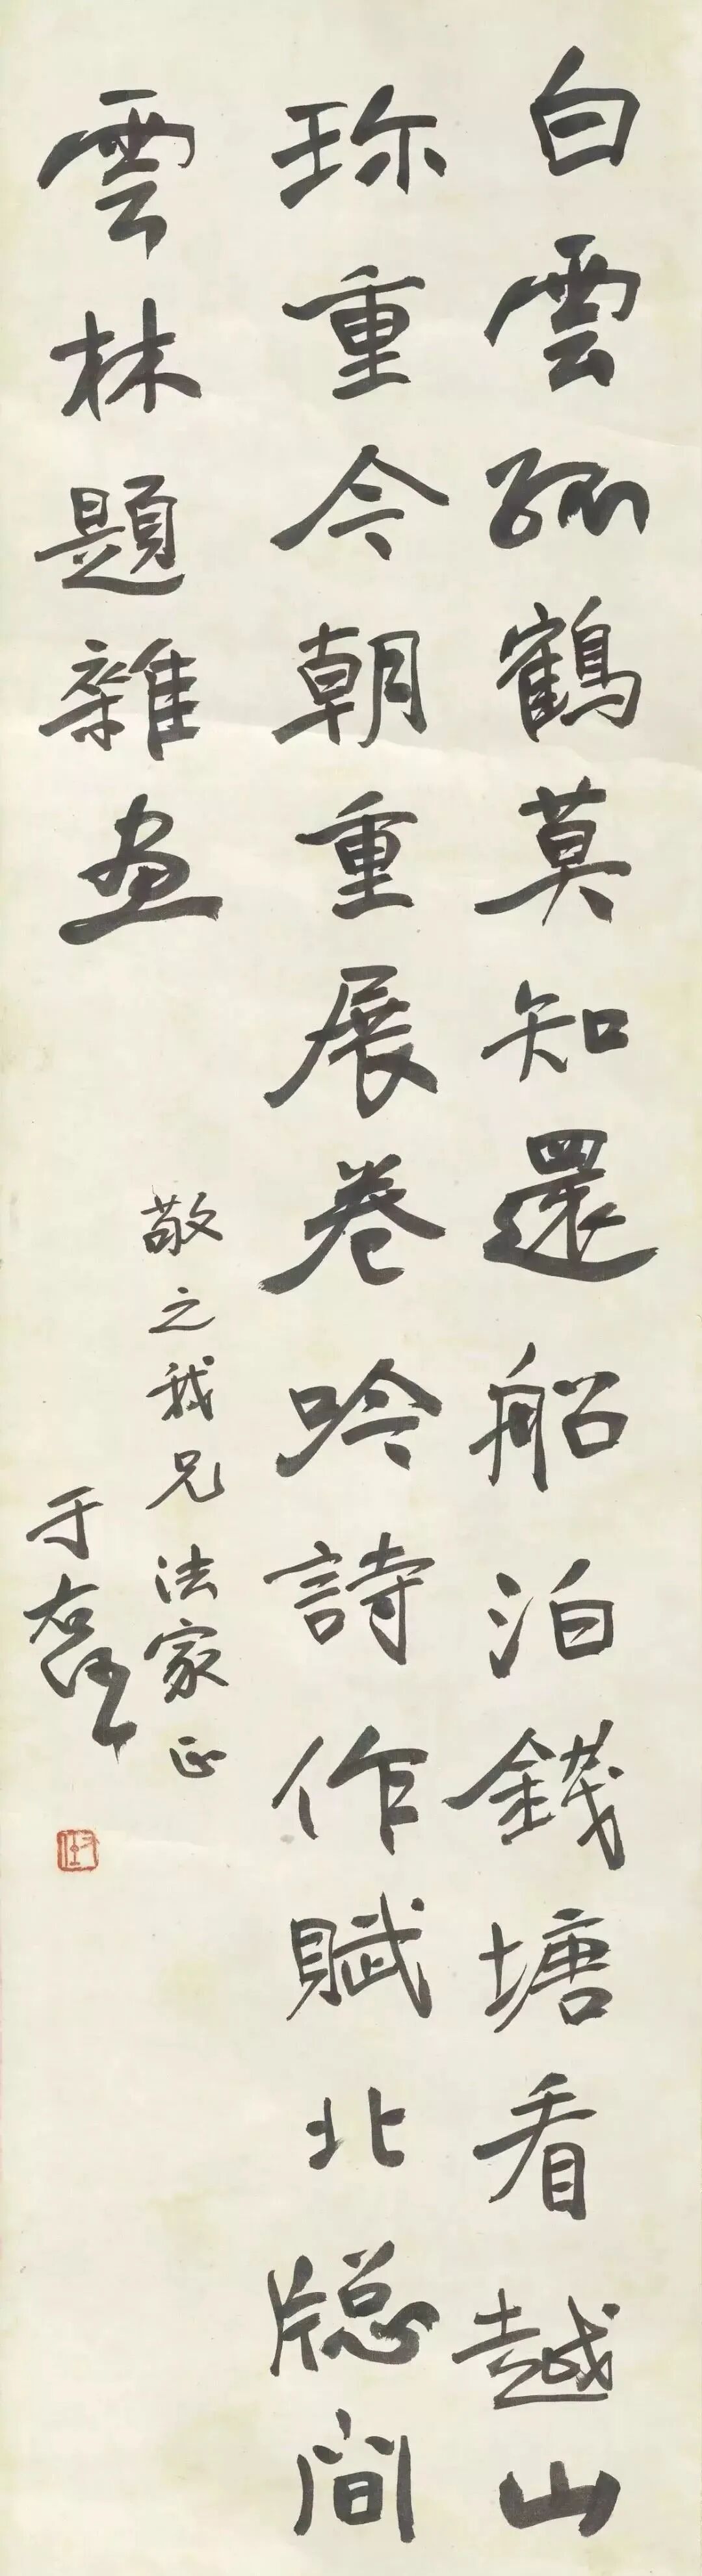 白雲孤鶴莫知還船泊錢塘看越山
珎重今朝重展卷吟詩作賦北牕間
雲林題雜画
敬之我兄法家正
于右任
右任